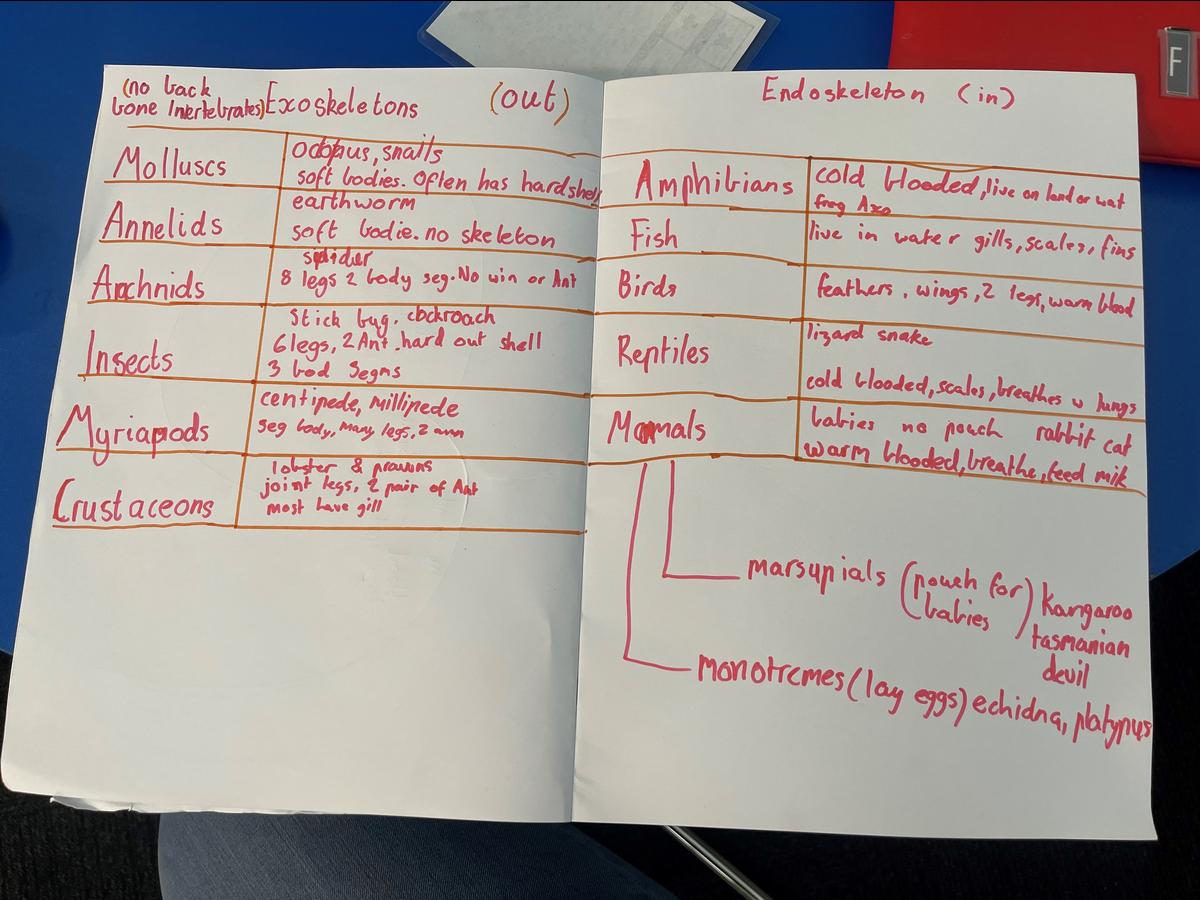 (no back
bone Inertebrates) Exoskeletons (out)
Molluscs
octopus, snails
soft bodies. Often has hard shell
Annelids
earthworm
soft bodie. no skeleton
Arachnids
spider
8 legs 2 body seg. No win or Ant
Insects
Stick bug. cockroach
6 legs, 2 Ant. hard out shell
3 bod Segns
Myriapods
centipede, millipede
seg body, many legs, 2 ann
Crustaceons
lobster & prawns
joint legs, 2 pair of Ant
most have gill
Endoskeleton (in)
Amphibians
cold blooded, live on land or wat
frog Axo
Fish
live in water gills, scales, fins
Birds
feathers, wings, 2 legs, warm blood
Reptiles
lizard snake
cold blooded, scales, breathes w lungs
Mammals
babies no pouch rabbit cat
warm blooded, breathe, feed milk
marsupials (pouch for babies) kangaroo
tasmanian
devil
monotremes (lay eggs) echidna, platypus
F